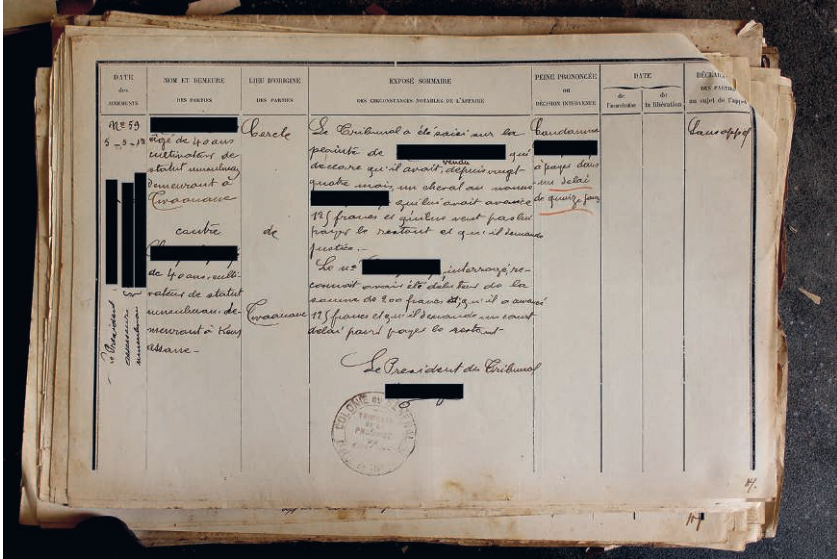 DATE
des
JUGEMENTS
NOM ET DEMEURE
DES PARTIES
LIEU D'ORIGINE
DES PARTIES
EXPOSÉ SOMMAIRE
DES CIRCONSTANCES NOTABLES DE L'AFFAIRE
PEINE PRONONCÉE
OU
DÉCISION INTERVENUE
DATE
de
l'incarcération
de
la libération
DÉCLARA
DES PARTIES
au sujet de l'appel
N° 59
âgé de 40 ans
cultivateur de
statut musulman
demeurant à
Tivaouane
contre
de 40 ans, culti-
vateur de statut
musulman, de-
meurant à
assane -
Le Président
assesseurs
musulman
Cercle
de
Tivaouane
Le Tribunal a été saisi sur la
plainte de qui
déclare qu'il avait vendu depuis vingt
quatre mois, un cheval au nommé
qui lui avait avancé
125 francs et qui ne veut pas lui
payer le restant et qu'il demande
justice. -
Le né interrogé, re-
connait avoir été débiteur de la
somme de 200 francs et, qu'il a avancé
125 francs et qu'il demande un court
délai pour payer le restant
Le President du Tribunal
COLONIE DU SÉNÉGAL
TRIBUNAL
DE LA
PROVINCE
Condamne
à payer dans
un délai
de quinze jours
Sans appel